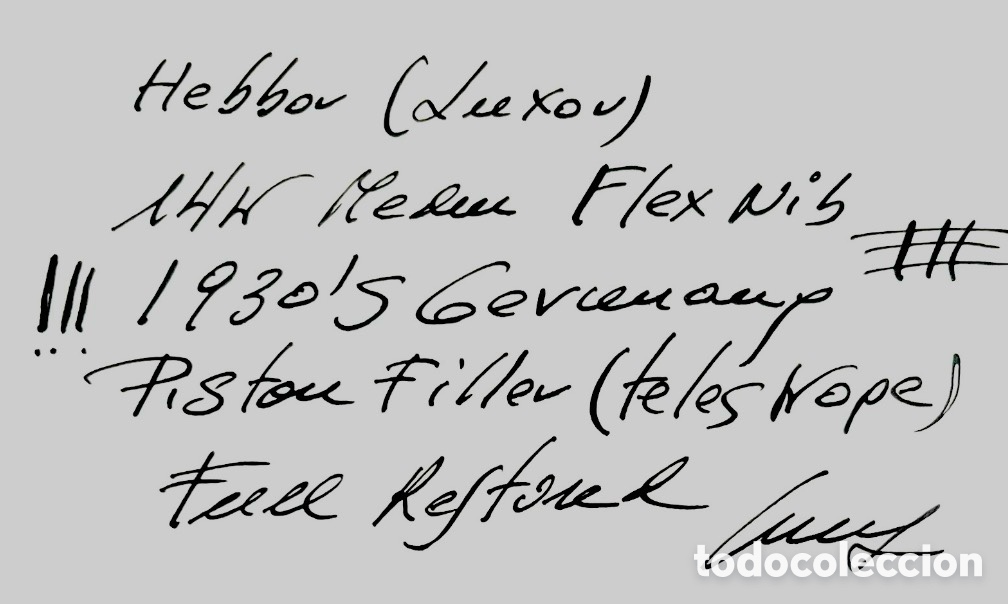 Hebbor (Luxor)
14K Flex Nib
!!! 1930's Germany
Piston Filler (teleskope)
Full Restored
todocoleccion